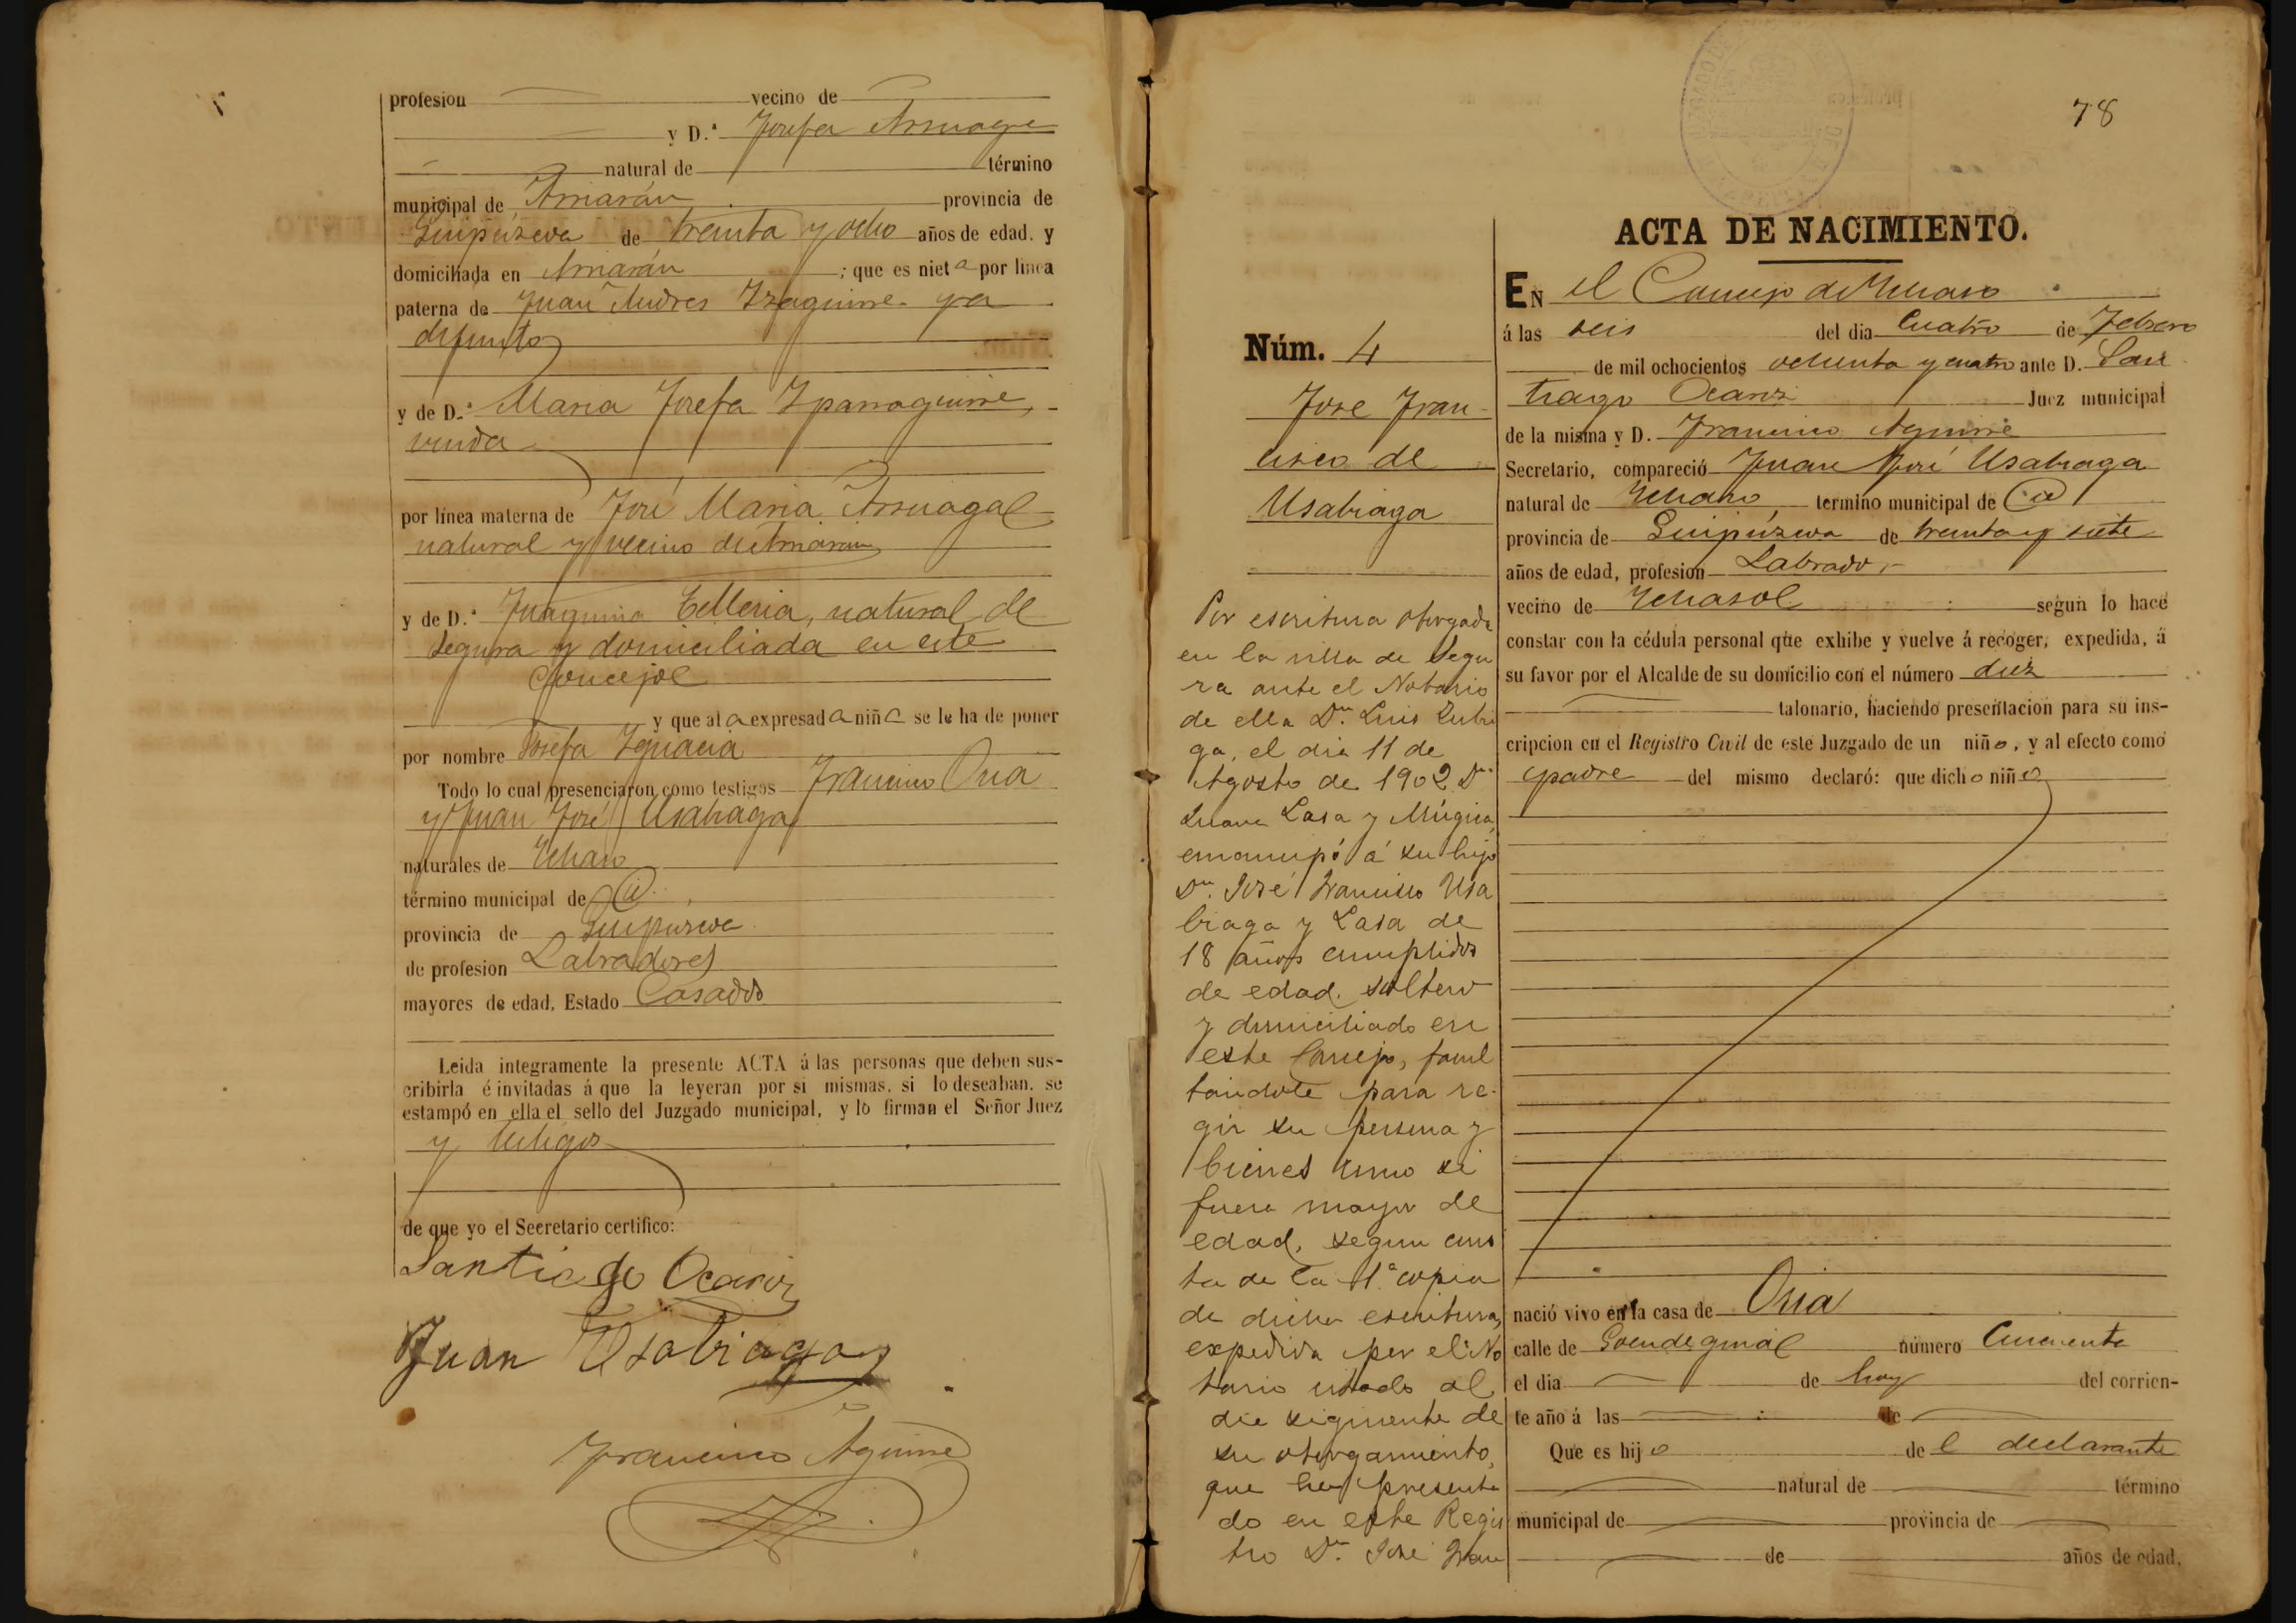 profesion vecino de
y D.ª Josefa Arsuaga
natural de término
municipal de Amarán provincia de
Guipúzcoa de treinta y ocho años de edad. y
domiciliada en Amarán ; que es nieta por linea
paterna de Juan Andres Yzaguirre ya
difunto
y de D.ª Maria Josefa Yparraguirre,
viuda
por línea materna de José Maria Arsuaga
natural y vecino de Amarán
y de D.ª Juaquina Telleria, natural de
Segura y domiciliada en este
Concejo
y que al a expresada niña se le ha de poner
por nombre Josefa Ygnacia
Todo lo cual presenciaron como testigos Francisco Oria
y Juan José Usabiaga
naturales de
término municipal de id
provincia de Guipuzcoa
de profesion Labradores
mayores de edad, Estado Casados
Leida integramente la presente ACTA á las personas que deben sus-
cribirla é invitadas á que la leyeran por si mismas, si lo deseaban, se
estampó en ella el sello del Juzgado municipal, y lo firman el Señor Juez
y testigos
de que yo el Secretario certifico:
Santiago Ocariz
Juan Usabiaga
Francisco Aguirre
78
ACTA DE NACIMIENTO.
Núm. 4
Jose Fran-
cisco de
Usabiaga
Por escritura otorgada
en la villa de Segu
ra ante el Notario
de ella Dn. Luis Zubi
ga, el dia 11 de
Agosto de 1902 Dª
Juana Lasa y Múgica,
emancipó á su hijo
Dn. José Francisco Usa
biaga y Lasa de
18 años cumplidos
de edad, soltero
y domiciliado en
este Concejo, facul
tandole para re-
gir su persona y
bienes como si
fuera mayor de
edad, segun cons
ta de la 1ª copia
de dicha escritura,
expedida por el No
tario citado al
dia siguiente de
su otorgamiento,
que ha presenta
do en este Regis
tro Dn. José Fran
EN el Concejo de
á las seis del dia Cuatro de Febrero
de mil ochocientos ochenta y cuatro ante D. San
tiago Ocariz Juez municipal
de la misma y D. Francisco Aguirre
Secretario, compareció Juan José Usabiaga
natural de termino municipal de id
provincia de Guipúzcoa de treinta y siete
años de edad, profesion Labrador
vecino de segun lo hace
constar con la cédula personal que exhibe y vuelve á recoger, expedida, á
su favor por el Alcalde de su domicilio con el número diez
talonario, haciendo presentacion para su ins-
cripcion en el Registro Civil de este Juzgado de un niño, y al efecto como
padre del mismo declaró: que dicho niño
nació vivo en la casa de Oria
calle de número Cincuenta
el dia de hoy del corrien-
te año á las de
Que es hijo del declarante
natural de término
municipal de provincia de
de años de edad,